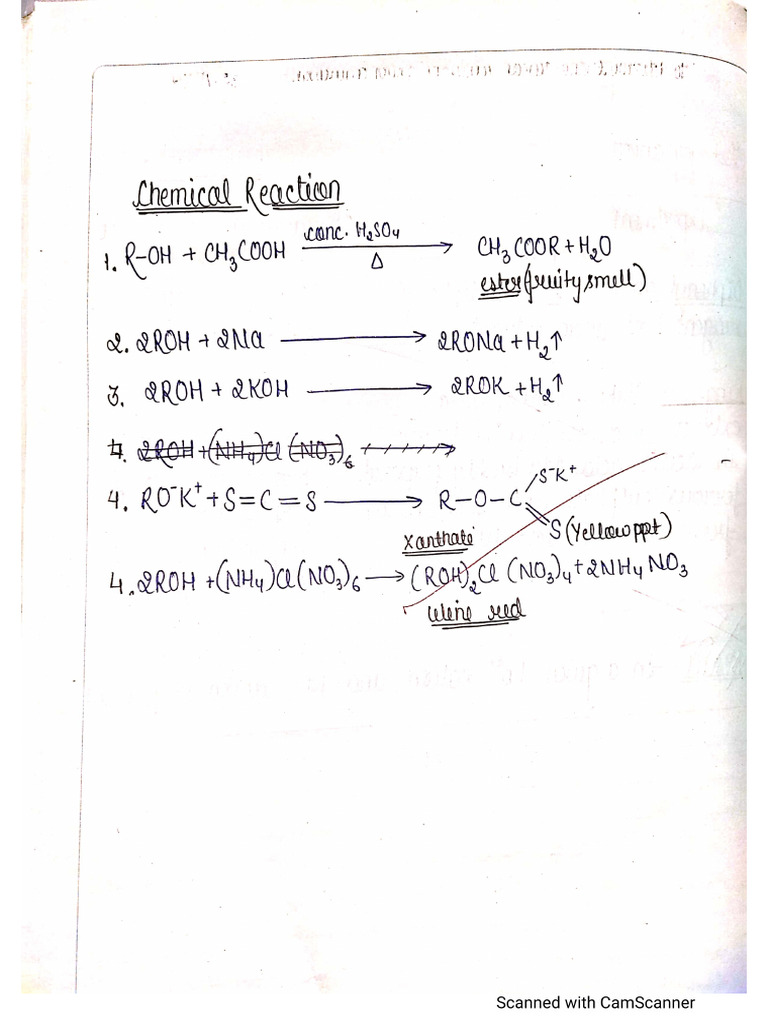 Chemical Reaction
1. R-OH + CH₃COOH —conc. H₂SO₄/Δ→ CH₃COOR + H₂O
ester (fruity smell)
2. 2ROH + 2Na ⟶ 2RONa + H₂↑
3. 2ROH + 2KOH ⟶ 2ROK + H₂↑
4. 2ROH + (NH₄)Cl (NO₃)₆ ⟶
S⁻K⁺
4. RO⁻K⁺ + S=C=S ⟶ R-O-C
S (Yellow ppt)
Xanthate
4. 2ROH + (NH₄)Cl(NO₃)₆ ⟶ (ROH)₂Cl (NO₃)₄ + 2NH₄NO₃
Wine red
Scanned with CamScanner